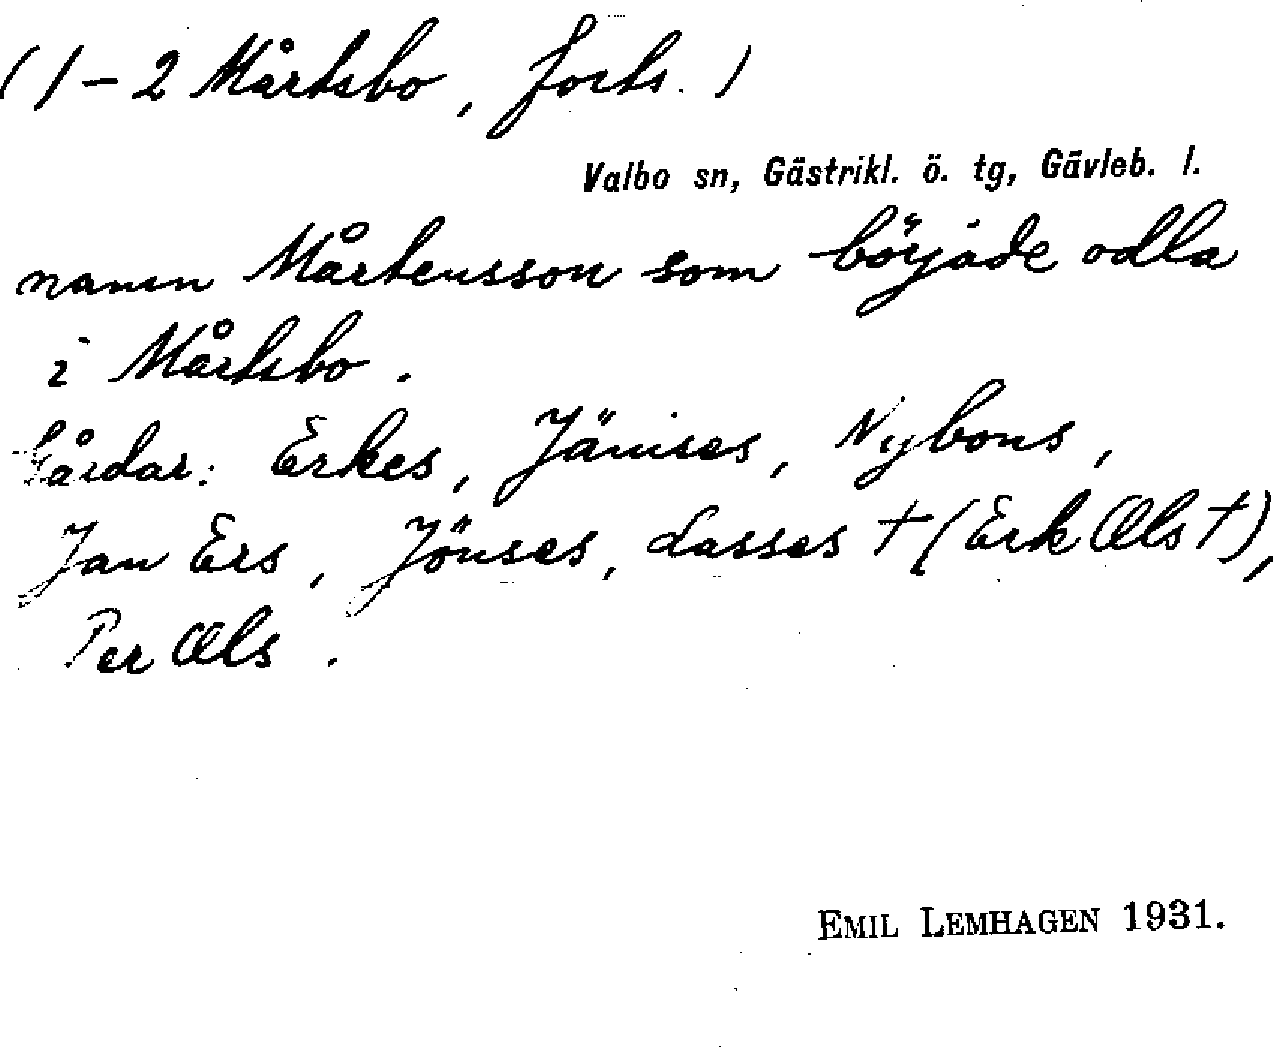 (1-2 Mårtsbo, forts.)
Valbo sn, Gästrikl. ö. tg, Gävleb. l.
namn Mårtensson som började odla
i Mårtsbo.
Gårdar: Erkes, Jänises, Nybons,
Jan Ers, Jönses, Lasses † (Erk Ols †),
Per Ols.
EMIL LEMHAGEN 1931.